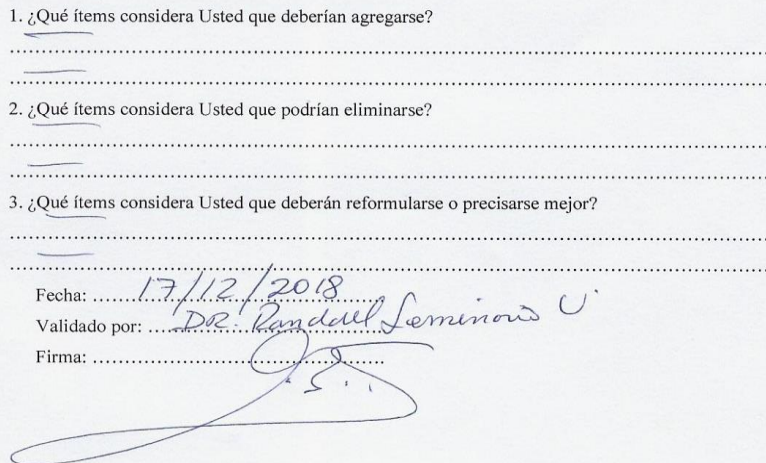 1. ¿Qué ítems considera Usted que deberían agregarse?
2. ¿Qué ítems considera Usted que podrían eliminarse?
3. ¿Qué ítems considera Usted que deberán reformularse o precisarse mejor?
Fecha: 17/12/2018
Validado por: DR. Randall Seminario U.
Firma: